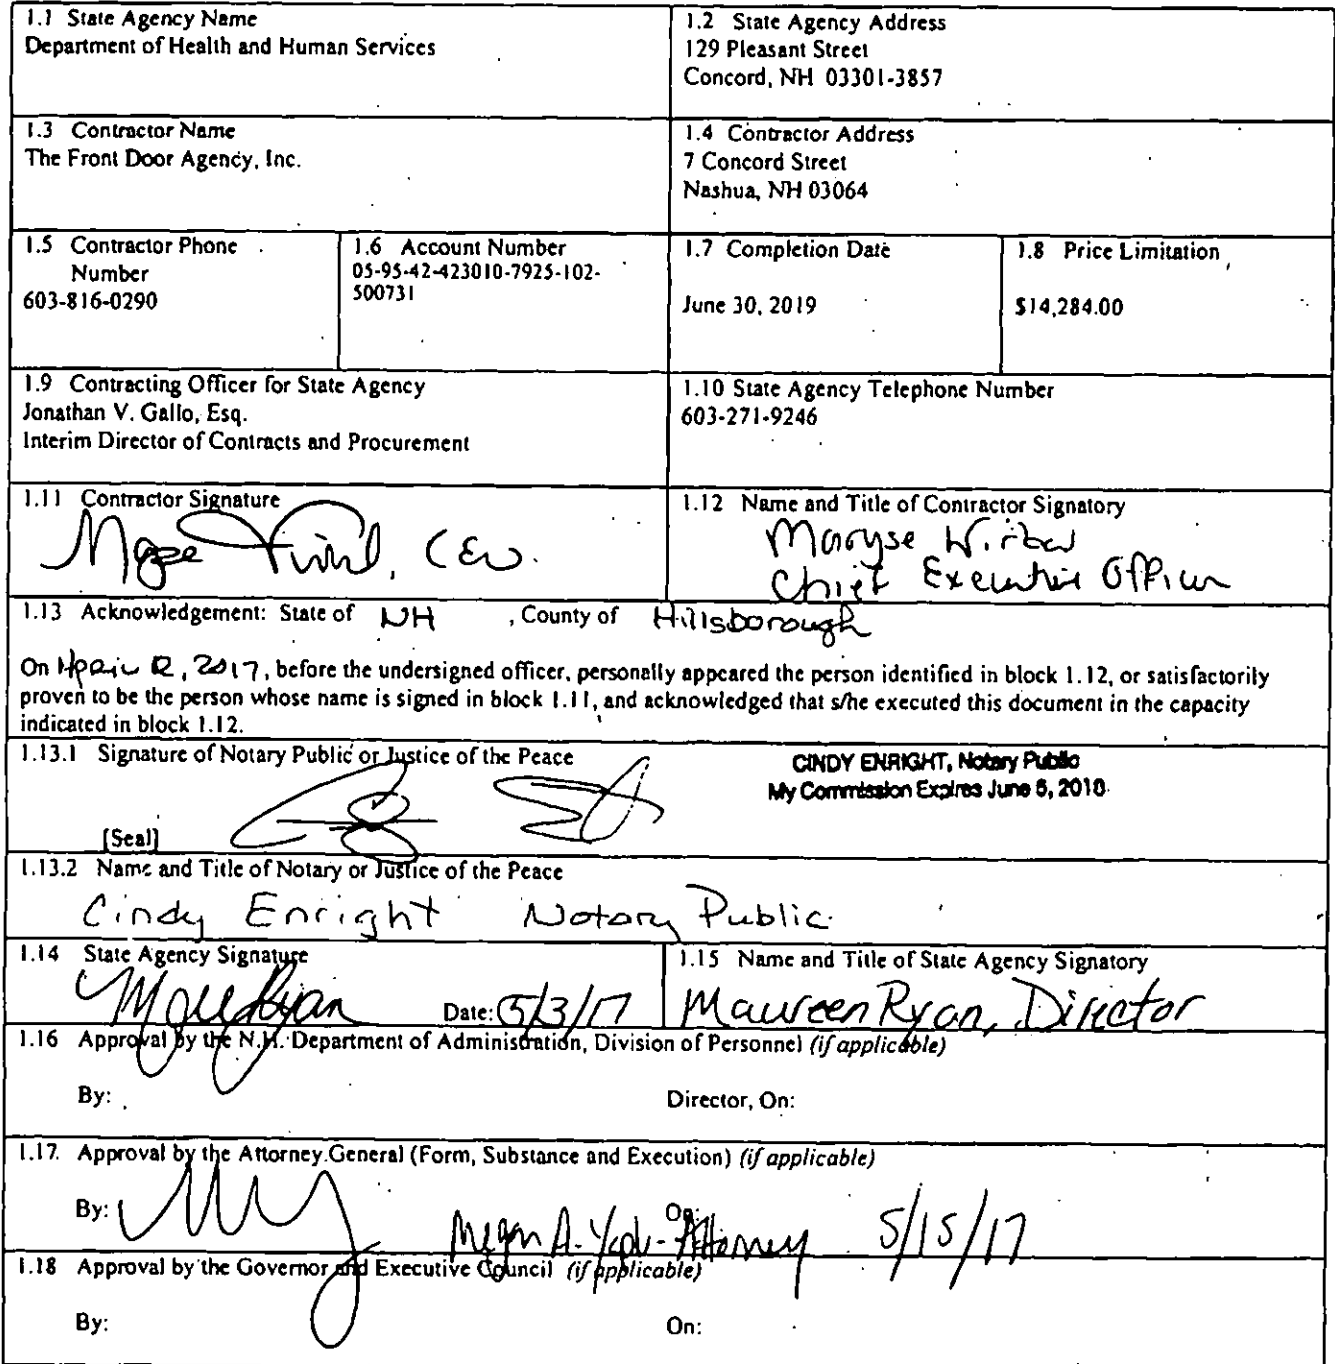 1.1 State Agency Name
Department of Health and Human Services
1.2 State Agency Address
129 Pleasant Street
Concord, NH 03301-3857
1.3 Contractor Name
The Front Door Agency, Inc.
1.4 Contractor Address
7 Concord Street
Nashua, NH 03064
1.5 Contractor Phone
Number
603-816-0290
1.6 Account Number
05-95-42-423010-7925-102-
500731
1.7 Completion Date
June 30, 2019
1.8 Price Limitation
$14,284.00
1.9 Contracting Officer for State Agency
Jonathan V. Gallo, Esq.
Interim Director of Contracts and Procurement
1.10 State Agency Telephone Number
603-271-9246
1.11 Contractor Signature
1.12 Name and Title of Contractor Signatory
Maryse
Chief Executive Officer
1.13 Acknowledgement: State of NH , County of Hillsborough
On April 12, 2017, before the undersigned officer, personally appeared the person identified in block 1.12, or satisfactorily
proven to be the person whose name is signed in block 1.11, and acknowledged that s/he executed this document in the capacity
indicated in block 1.12.
1.13.1 Signature of Notary Public or Justice of the Peace
CINDY ENRIGHT, Notary Public
My Commission Expires June 5,
[Seal]
1.13.2 Name and Title of Notary or Justice of the Peace
Cindy Enright Notary Public
1.14 State Agency Signature
Date: 5/3/17
1.15 Name and Title of State Agency Signatory
Maureen Ryan, Director
1.16 Approval by the N.H. Department of Administration, Division of Personnel (if applicable)
By:
Director, On:
1.17. Approval by the Attorney General (Form, Substance and Execution) (if applicable)
By:
On:
Megan A. - Attorney 5/15/17
1.18 Approval by the Governor and Executive Council (if applicable)
By:
On: